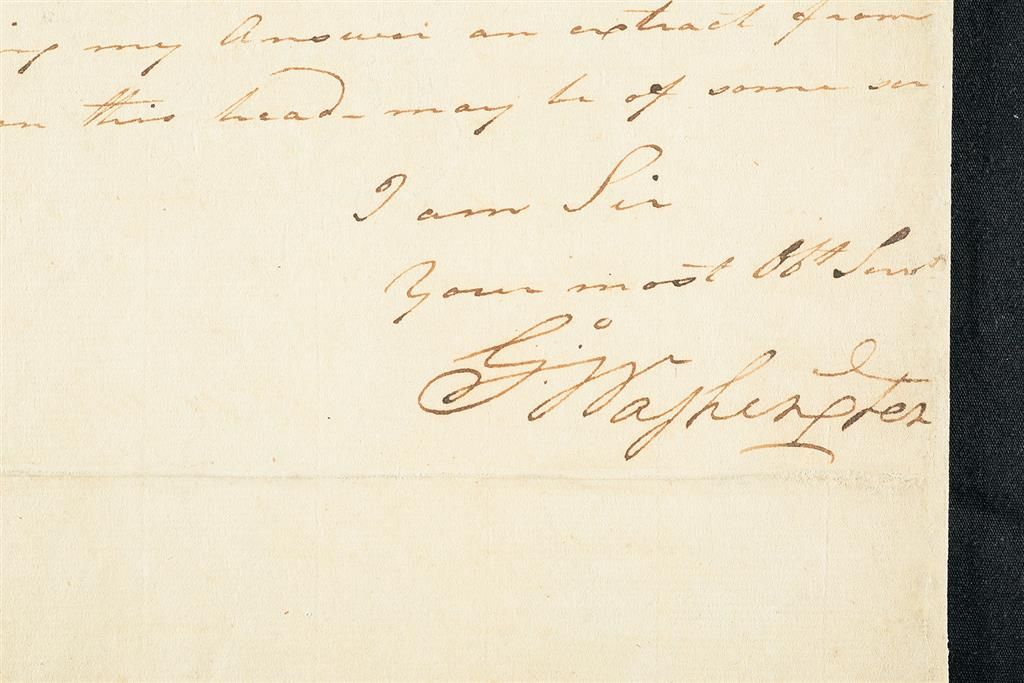 ing my Answer an extract from
on this head – may be of some ser
I am Sir
Your most Obt Servt
Go Washington